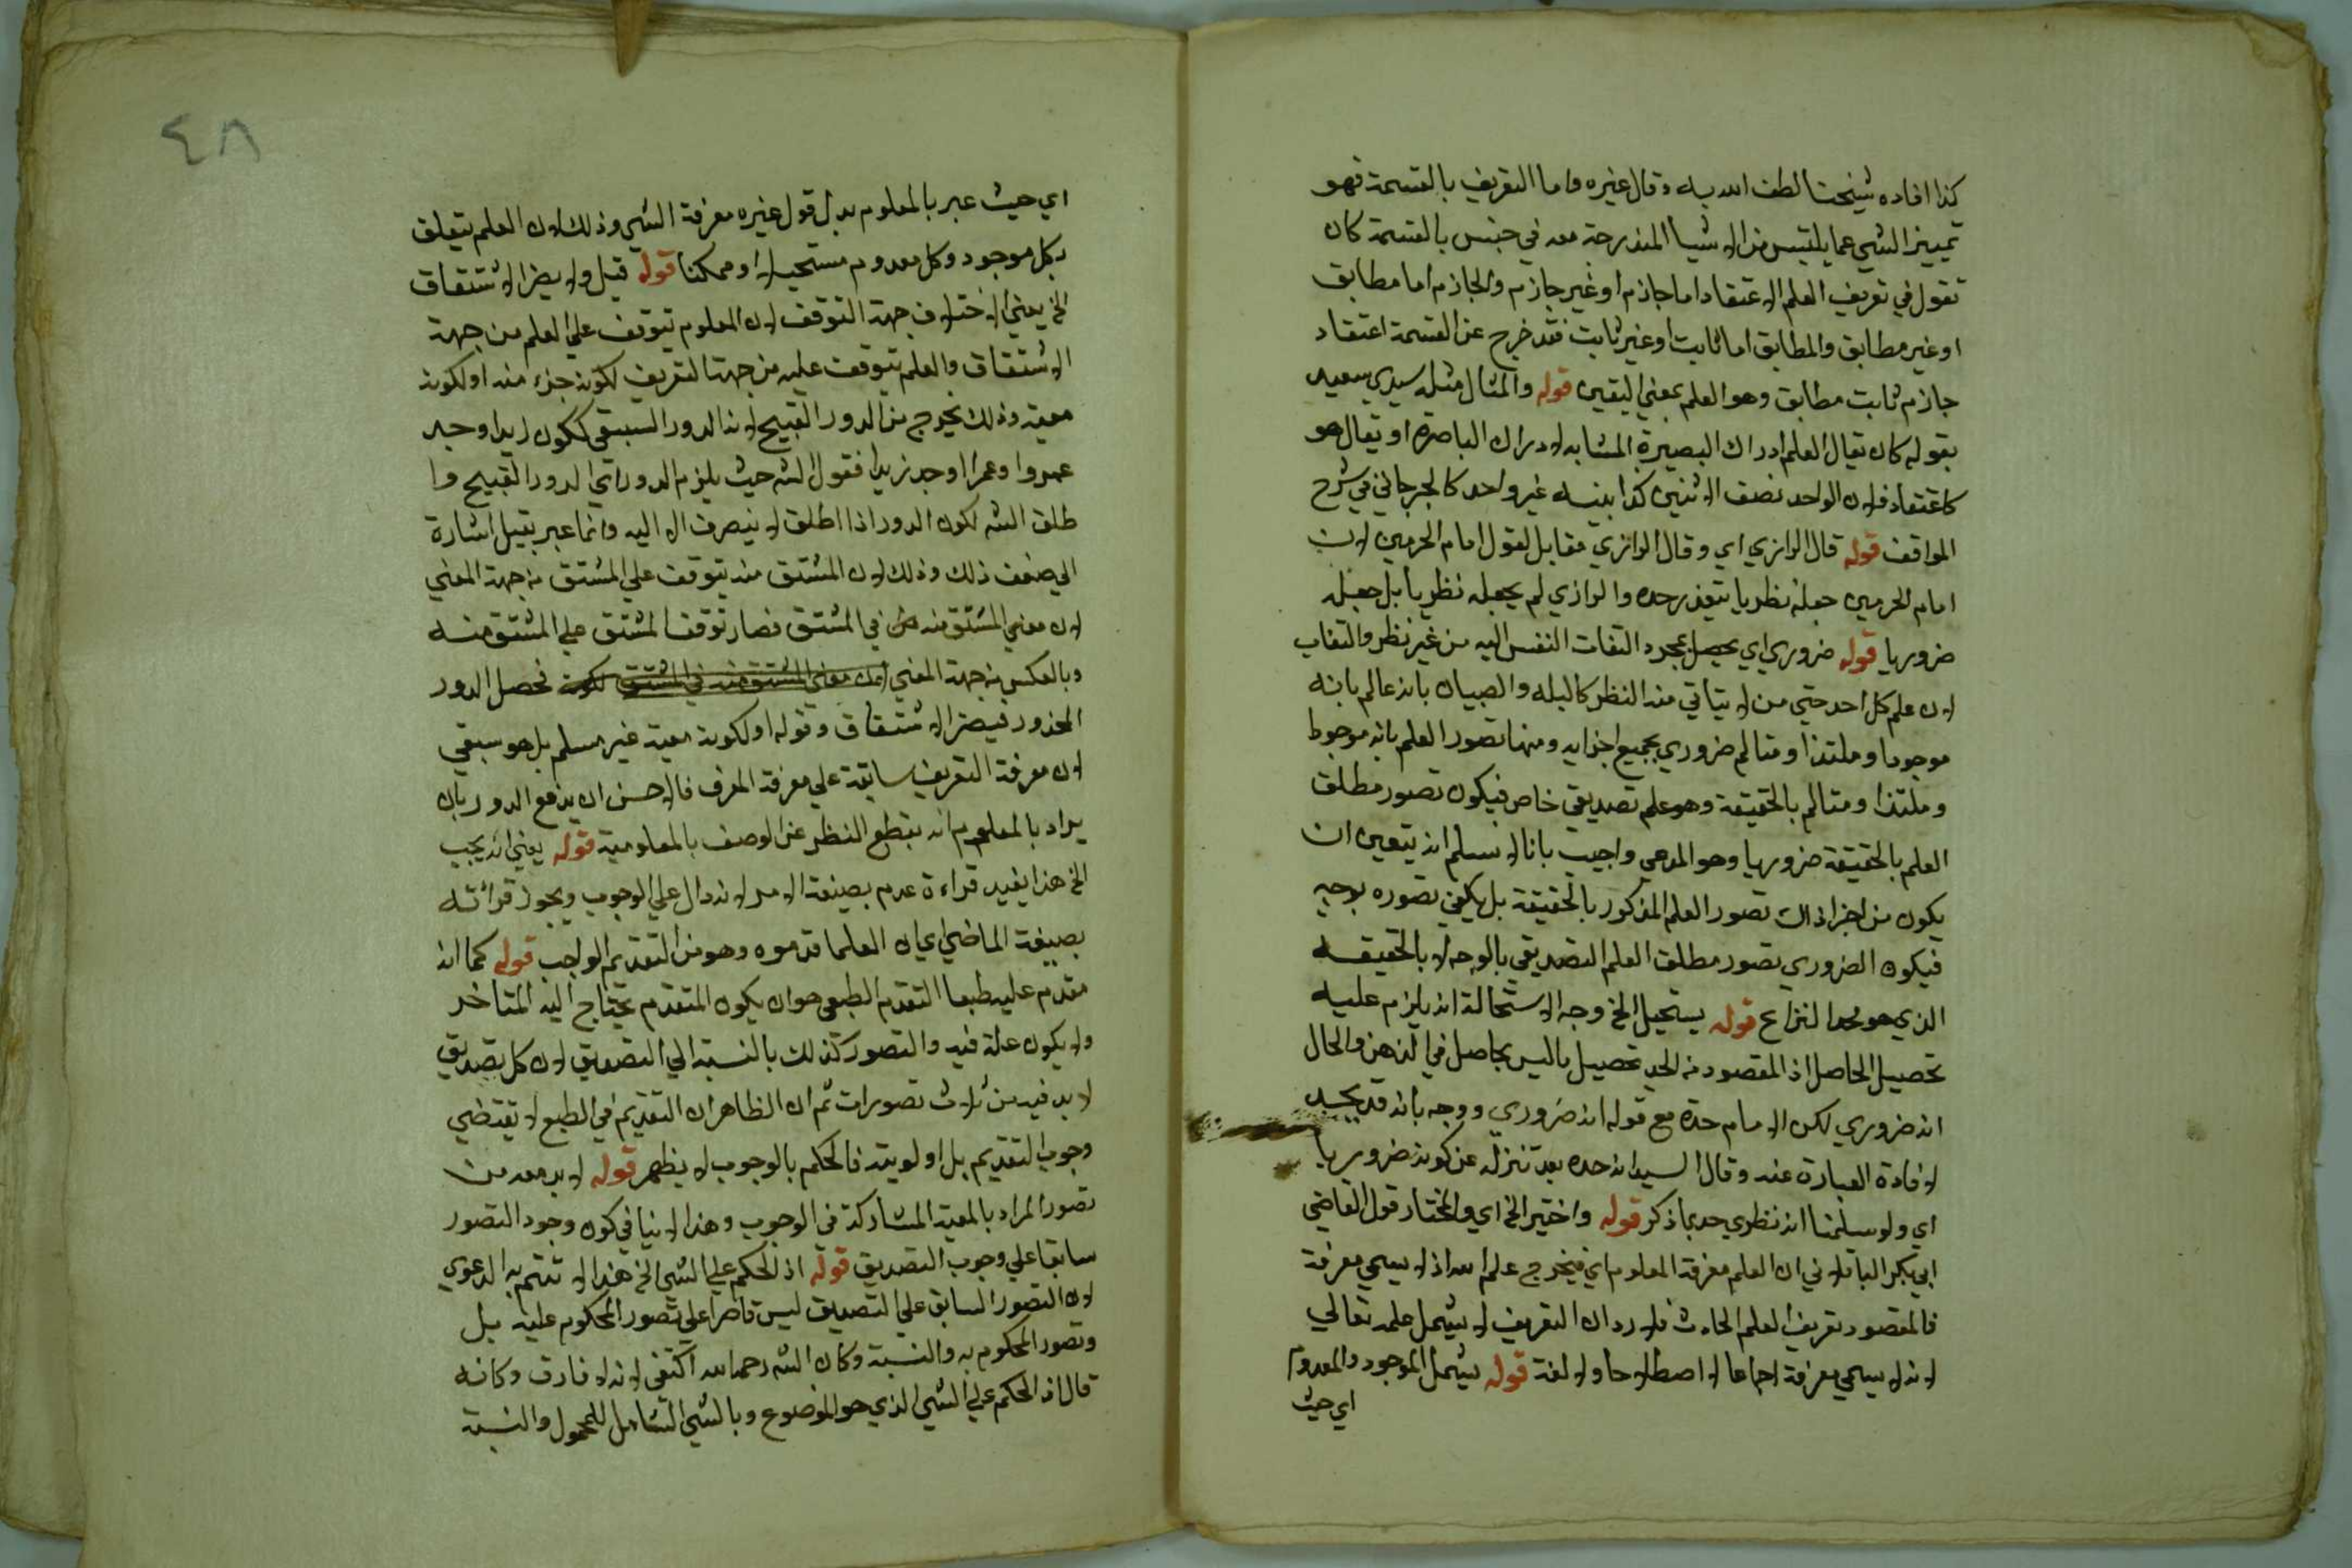 كذا افاده شيخنا لطف الله به وقال غيره واما التعريف بالقسمة فهو
تمييز الشي عما يلتبس من الاشيا المندرجة معه في جنس بالقسمة كان
تقول في تعريف العلم الاعتقاد اما جازم او غير جازم والجازم اما مطابق
او غير مطابق والمطابق اما ثابت او غير ثابت فقد خرج عن القسمة اعتقاد
جازم ثابت مطابق وهو العلم بمعني اليقين قوله والمثال مثله سيدي سعيد
بقوله كان يقال العلم ادراك البصيرة المشابه لادراك الباصره او يقال هو
كاعتقاد فان الواحد نصف الاثنين كذا بينه غير واحد كالجرجاني في شرح
المواقف قوله قال الرازي اي وقال الرازي مقابل لقول امام الحرمين لان
امام الحرمين جعله نظريا يتعذر حده والرازي لم يجعله نظريا بل جعله
ضروريا قوله ضروري اي يحصل بمجرد التفات النفس اليه من غير نظر والتفات
لان علم كل احد حتي من لا يتاتي منه النظر كالبله والصبيان بانه عالم بانه
موجود او ملتذا ومتالم ضروري بجميع اجزايه ومنها تصور العلم بانه موجود
وملتذا ومتالم بالحقيقة وهو علم تصديقي خاص فيكون تصور مطلق
العلم بالحقيقة ضروريا وهو المدعي واجيب بانا لا نسلم انه يتعين ان
يكون من اجزا ذاك تصور العلم المذكور بالحقيقة بل يكفي تصوره بوجه
فيكون الضروري تصور مطلق العلم التصديقي بالوجه لا بالحقيقة
الذي هو محل النزاع قوله يستحيل الخ وجه الاستحالة انه يلزم عليه
تحصيل الحاصل اذ المقصود من الحد تحصيل ما ليس بحاصل في الذهن والحال
انه ضروري لكن الامام حده مع قوله انه ضروري ووجه بانه قد يحد
لافادة العبارة عنه وقال السيد انه حده بعد تنزله عن كونه ضروريا
اي ولو سلمنا انه نظري حد بما ذكر قوله واختير الخ اي والمختار قول القاضي
ابي بكر الباقلاني ان العلم معرفة المعلوم اي فيخرج علم الله اذ لا يسمي معرفة
فالمقصود تعريف العلم الحادث فلا يرد ان التعريف لا يشمل علمه تعالي
لانه لا يسمي معرفة اجماعا لا اصطلاحا ولا لغة قوله يشمل الموجود والمعدوم
اي حيث
٤٨
اي حيث عبر بالمعلوم بدل قول غيره معرفة الشي وذلك لان العلم يتعلق
بكل موجود وكل معدوم مستحيلا او ممكنا قوله قيل ولا يضر الاشتقاق
الخ يعني لاختلاف جهة التوقف لان المعلوم يتوقف علي العلم من جهة
الاشتقاق والعلم يتوقف عليه من جهة التعريف لكونه جزء منه او لكونه
معية وذلك يخرج من الدور القبيح لانه الدور السبقي ككون زيد اوجد
عمروا وعمرا اوجد زيدا فقول الشه حيث يلزم الدور اي الدور القبيح وا
طلق الشه لكون الدور اذا اطلق لا ينصرف الا اليه وانما عبر بقيل اشارة
الي ضعف ذلك وذلك لان المشتق منه يتوقف علي المشتق من جهة المعني
لان معني المشتق منه في المشتق فصار توقف المشتق علي المشتق منه
وبالعكس من جهة المعني لان معني المشتق منه في المشتق لكونه فحصل الدور
المحذور فيضر الاشتقاق وقوله او لكونه معية غير مسلم بل هو سبقي
لان معرفة التعريف سابقة علي معرفة المعرف فالاحسن ان يدفع الدور بان
يراد بالمعلوم انه بقطع النظر عن الوصف بالمعلومية قوله يعني انه يجب
الخ هذا يفيد قراءة عدم بصيغة الامر لانه دال علي الوجوب ويجوز قرائته
بصيغة الماضي اي ان العلما قدموه وهو من التقديم الواجب قوله كما انه
مقدم عليه طبعا التقدم الطبعي هو ان يكون المتقدم يحتاج اليه المتاخر
ولا يكون علة فيه والتصور كذلك بالنسبة الي التصديق لان كل تصديق
لا بد فيه من ثلاث تصورات ثم ان الظاهر ان التقديم في الطبع لا يقتضي
وجوب التقديم بل اولويته فالحكم بالوجوب لا يظهر قوله لا بد معه من
تصور المراد بالمعية المشاركة في الوجوب وهذا لا ينافي كون وجود التصور
سابقا علي وجوب التصديق قوله اذ الحكم علي الشي الخ هذا لا تتم به الدعوي
لان التصور السابق علي التصديق ليس قاصرا علي تصور المحكوم عليه بل
وتصور المحكوم به والنسبة وكان الشه رحمه الله اكتفي لانه لا فارق وكانه
قال اذ الحكم علي الشي الذي هو الموضوع وبالشي الشامل للمحمول والنسبة